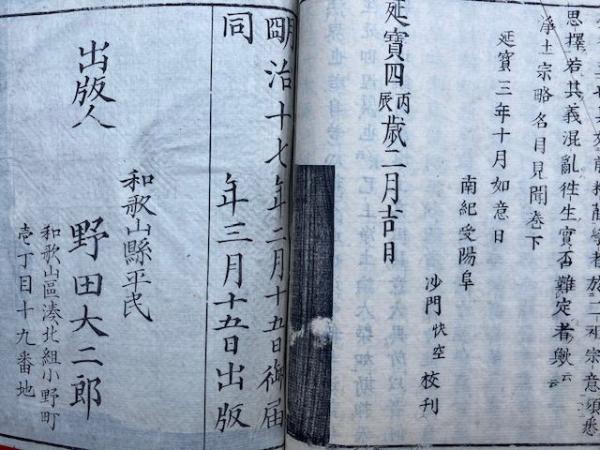 思擇若其義混亂徃生實否難定者歟云云
淨土宗略名目見聞卷下
延寶三年十月如意日
南紀受陽阜
沙門快空校刊
延寶四丙辰歲二月吉日
明治十七年二月十五日御届
同年三月十五日出版
和歌山縣平民
出版人 野田大二郎
和歌山區湊北組小野町
壱丁目十九番地